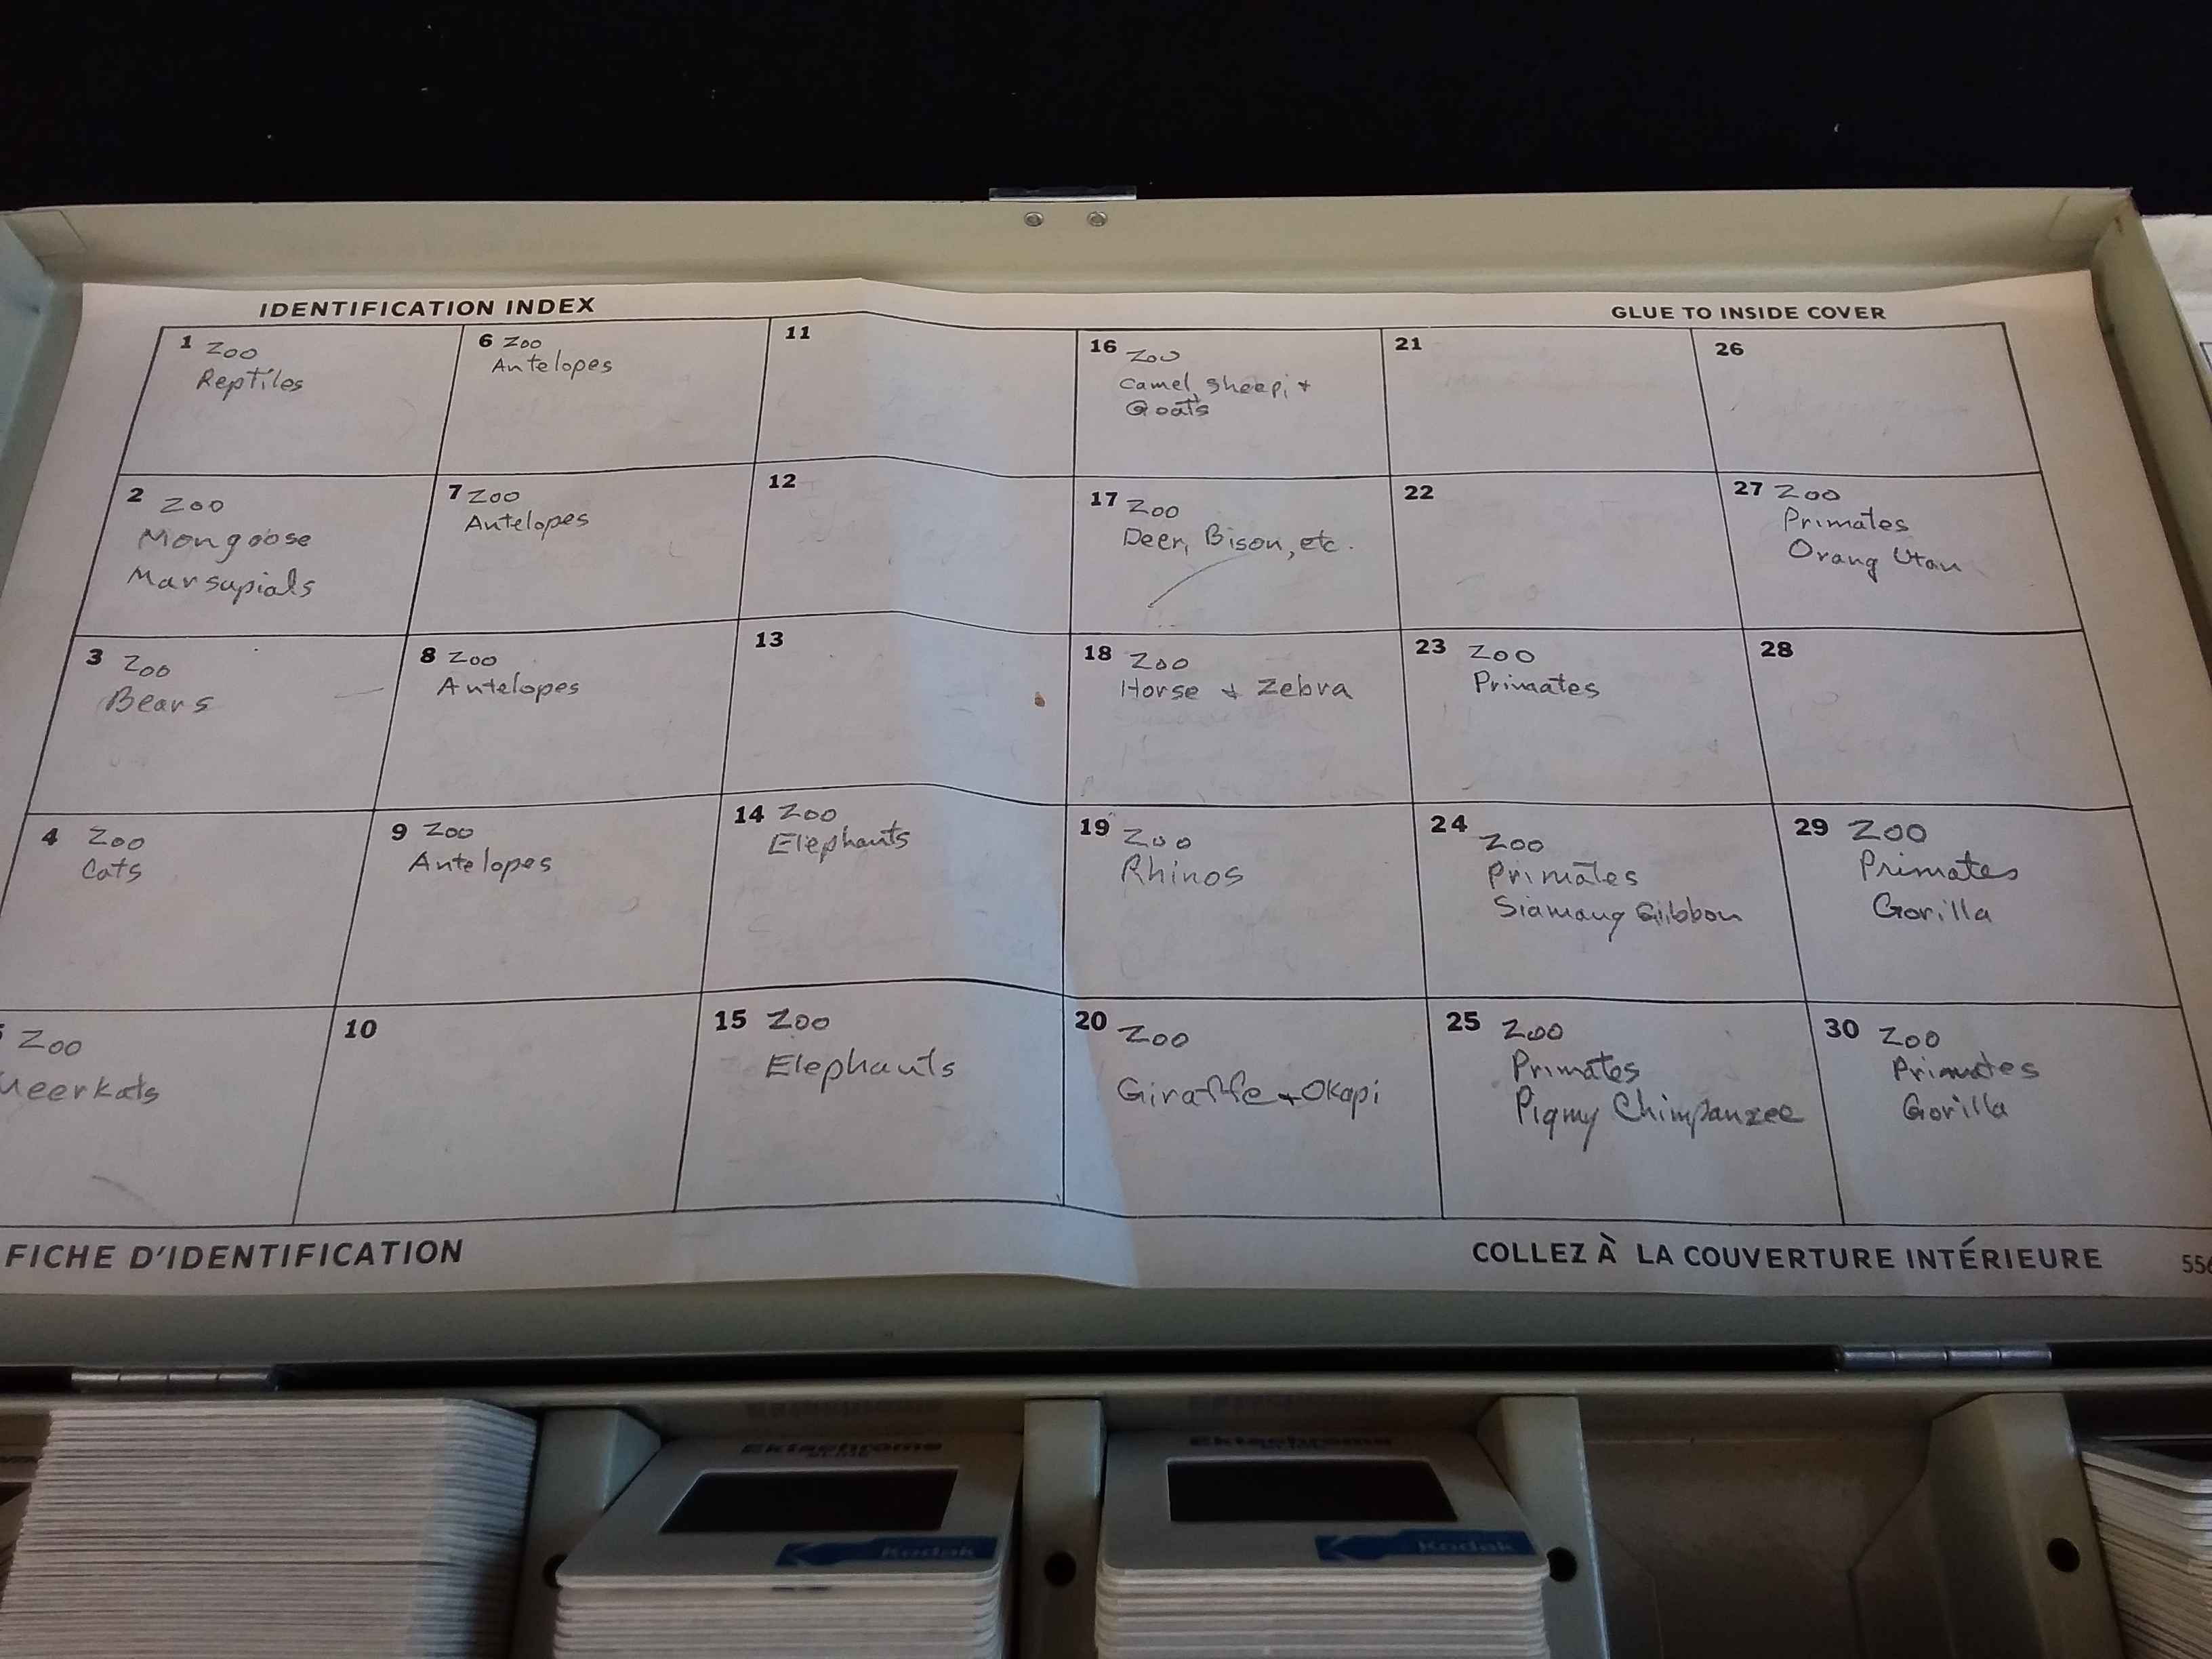 IDENTIFICATION INDEX
GLUE TO INSIDE COVER
1 Zoo
Reptiles
2 Zoo
Mongoose
Marsupials
3 Zoo
Bears
4 Zoo
Cats
Zoo
Meerkats
6 Zoo
Antelopes
7 Zoo
Antelopes
8 Zoo
Antelopes
9 Zoo
Antelopes
10
11
12
13
14 Zoo
Elephants
15 Zoo
Elephants
16 Zoo
Camel, Sheep, +
Goats
17 Zoo
Deer, Bison, etc.
18 Zoo
Horse + Zebra
19 Zoo
Rhinos
20 Zoo
Giraffe + Okapi
21
22
23 Zoo
Primates
24 Zoo
Primates
Siamang Gibbon
25 Zoo
Primates
Pigmy Chimpanzee
26
27 Zoo
Primates
Orang Utan
28
29 Zoo
Primates
Gorilla
30 Zoo
Primates
Gorilla
FICHE D'IDENTIFICATION
COLLEZ À LA COUVERTURE INTÉRIEURE
556
Ektachrome
Kodak
Ektachrome
Kodak